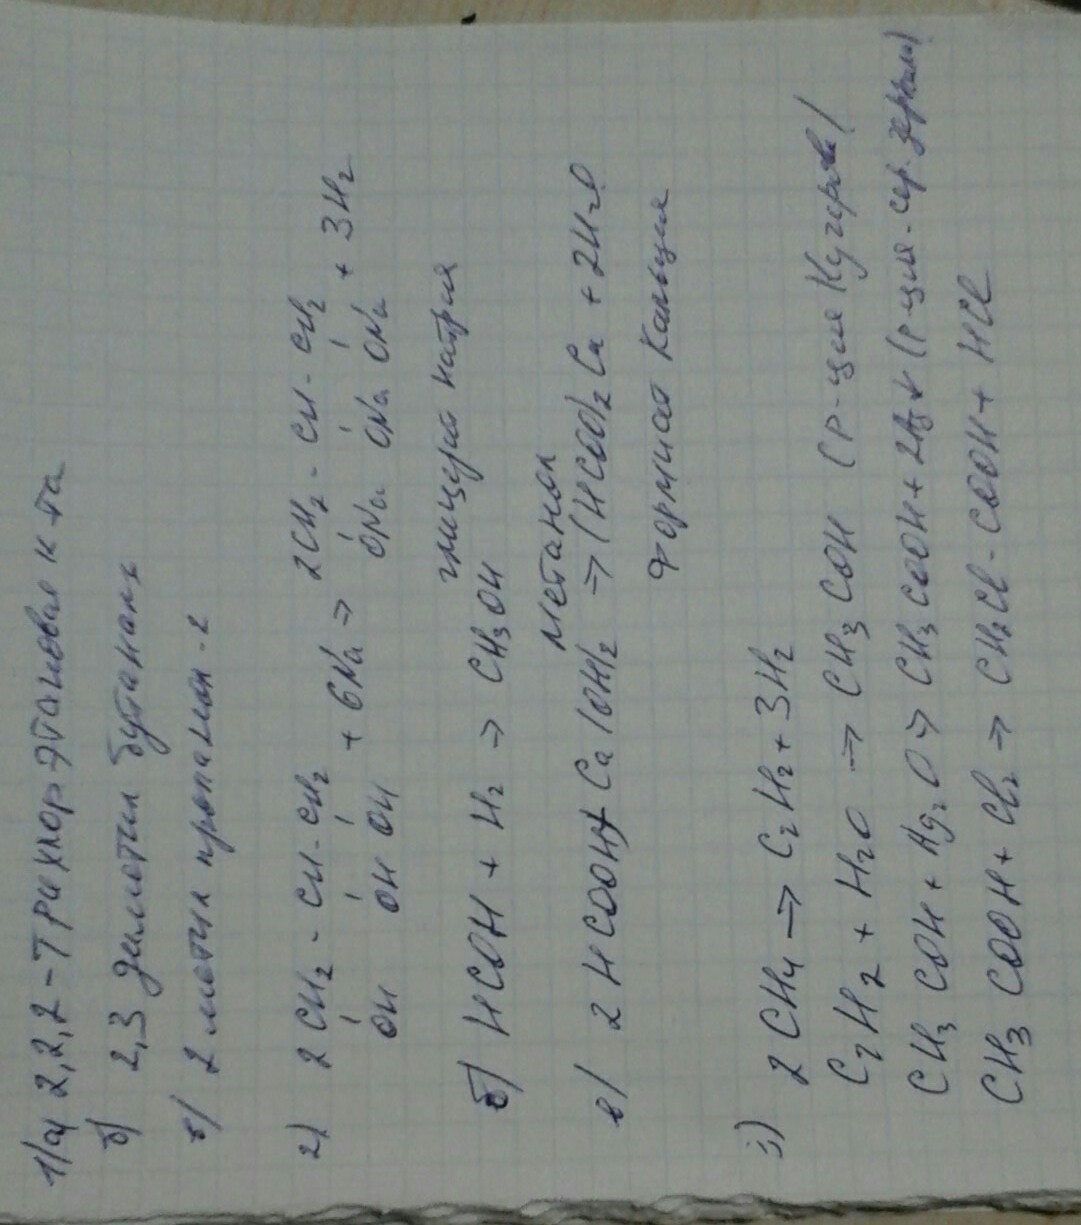 1) а) 2,2,2-трихлорэтановая к-та
б) 2,3 диметилбутаналь
в) 2 метил пропанол-2
2) 2CH₂ - CH - CH₂ + 6Na → 2CH₂ - CH - CH₂ + 3H₂
OH OH OH ONa ONa ONa
глицерат натрия
б) HCOH + H₂ → CH₃OH
метанол
в) 2 HCOOH + Ca(OH)₂ → (HCOO)₂Ca + 2H₂O
формиат кальция
3) 2 CH₄ → C₂H₂ + 3H₂
C₂H₂ + H₂O → CH₃COH (р-ция Кучерова)
CH₃COH + Ag₂O → CH₃COOH + 2Ag↓ (р-ция-сер. зеркала)
CH₃COOH + Cl₂ → CH₂Cl-COOH + HCl